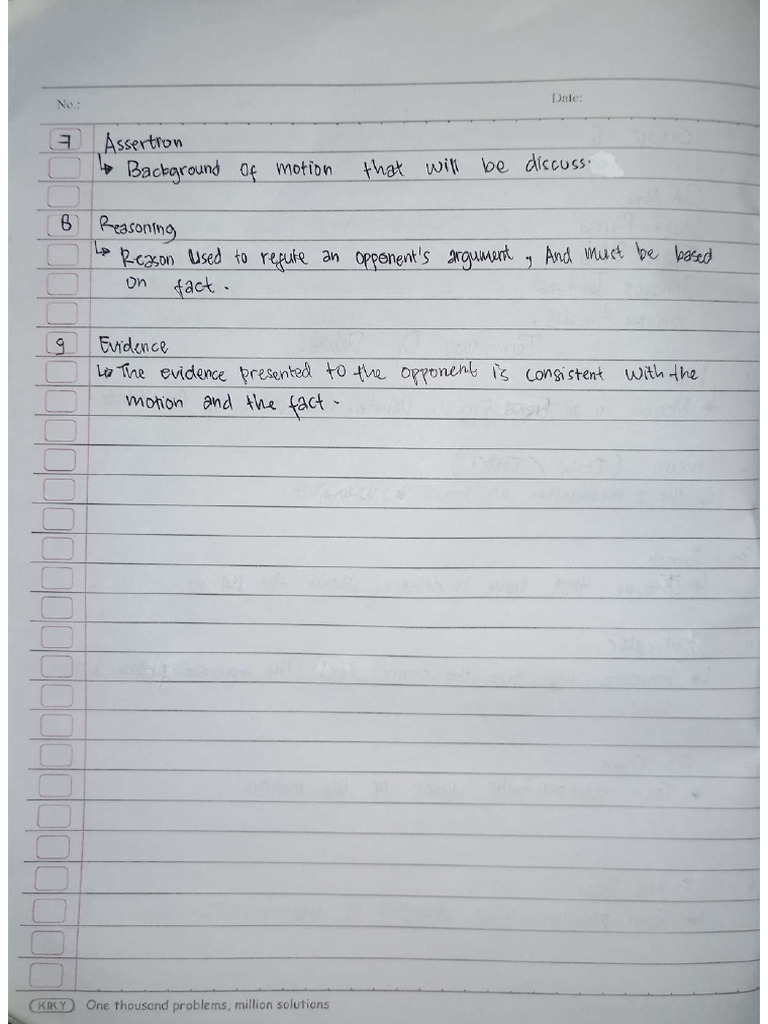 No.: Date:
7 Assertion
↳ Background of motion that will be discuss.
8 Reasoning
↳ Reason used to refute an opponent's argument, And must be based
on fact.
9 Evidence
↳ The evidence presented to the opponent is consistent with the
motion and the fact.
KIKY One thousand problems, million solutions